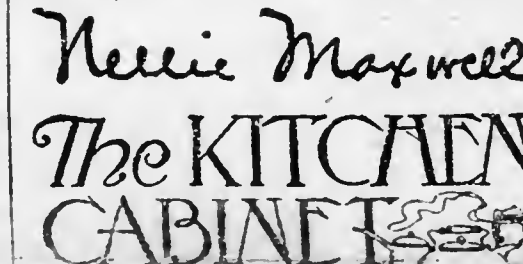 Nellie Maxwell
The KITCHEN
CABINET